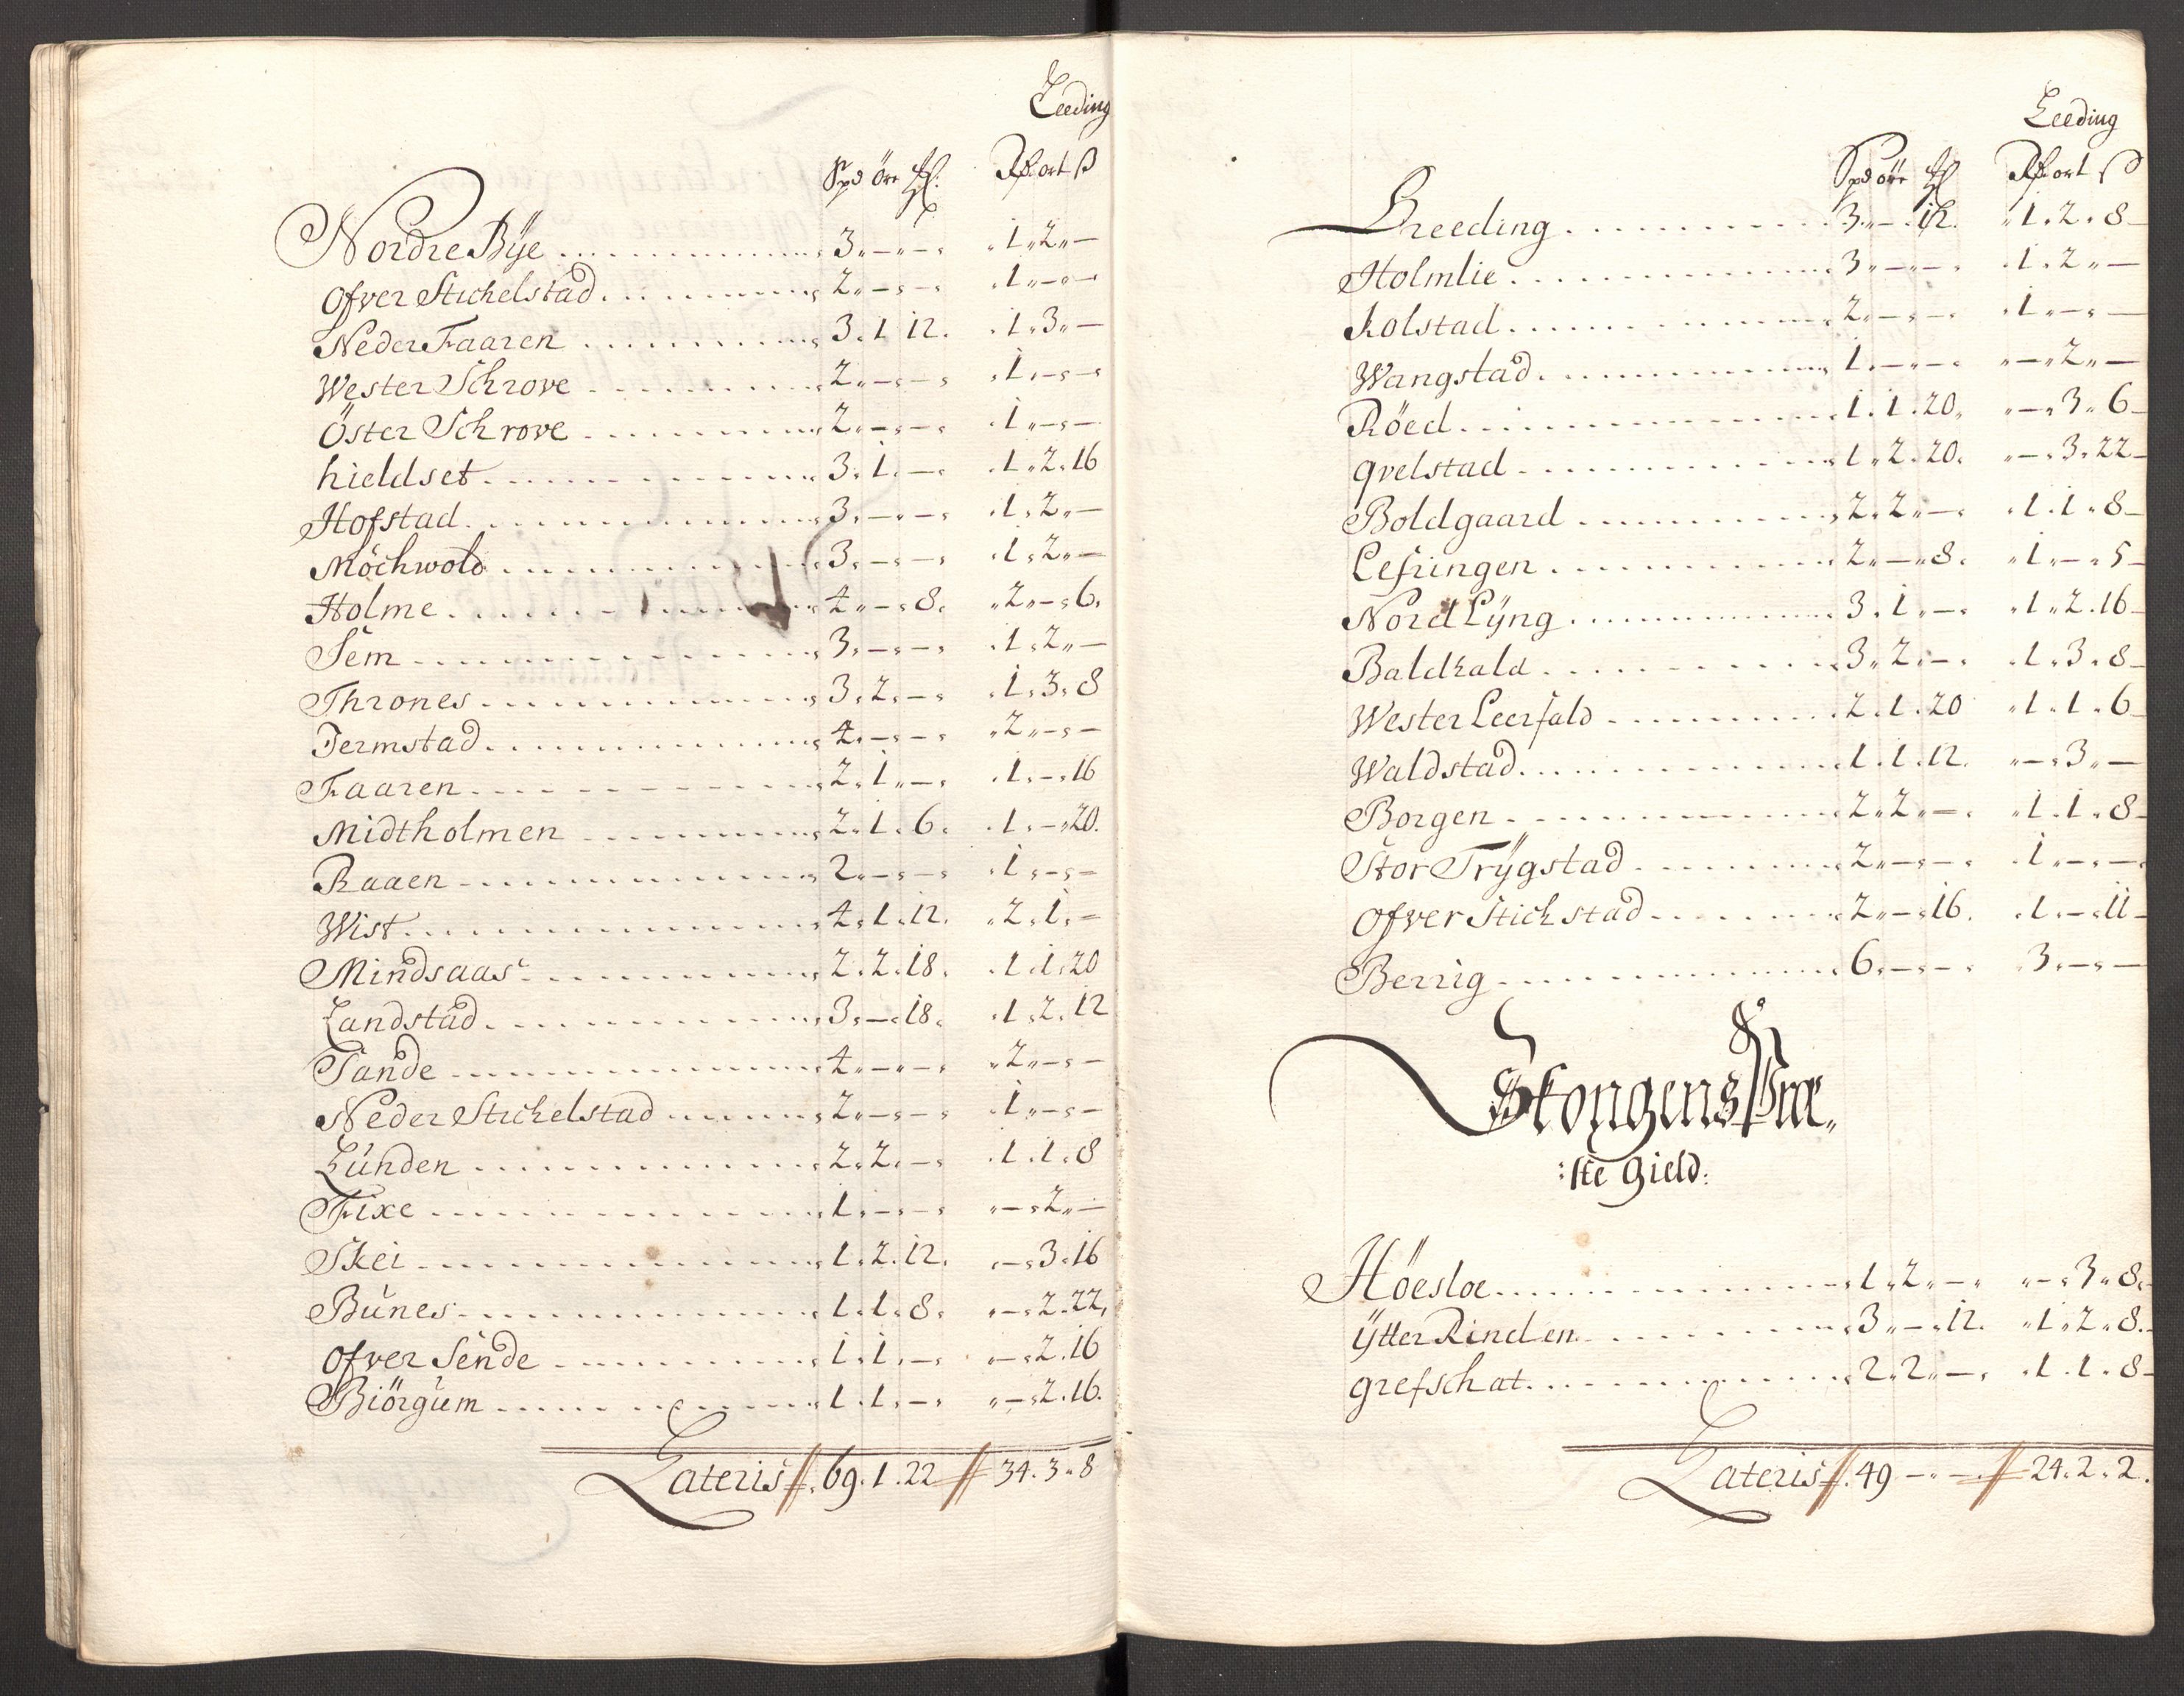 Leeding
Spd öre Rd ort ß
Nordre Bÿe 3 „ — „ — „ 1 „ 2 „ —
Ofver Stichelstad 2 „ — „ — „ 1 „ — „ —
Neder Faaren 3 . 1 12 . 1 . 3 „ —
Wester Schrove 2 „ — „ — „ 1 „ — „ —
Öster Schrove 2 „ — „ — . 1 „ — „ —
hieldset 3 . 1 . — . 1 . 2 . 16
Hofstad 3 . — „ — . 1 . 2 „ —
Möchwold 3 . — „ — . 1 . 2 „ —
Holme 4 „ — „ 8 . „ 2 „ — „ 6 .
Sem 3 . — „ — . 1 . 2 „ —
Thrones 3 . 2 . — . 1 . 3 . 8
Jermstad 4 . — „ — „ 2 „ — „ —
Faaren 2 . 1 „ — . 1 . — . 16
Midtholmen 2 . 1 . 6 . . 1 . — „ 20 .
Raaen 2 „ — „ — . 1 „ — „ —
Wist 4 . 1 . 12 . „ 2 . 1 . —
Mindsaas 2 . 2 . 18 . . 1 . 1 . 20
Landstad 3 . — . 18 . . 1 . 2 . 12
Sande 4 „ — „ — „ 2 „ — „ —
Neder Stichelstad 2 „ — „ — . 1 „ — „ —
Lunden 2 . 2 . — . 1 . 1 . 8
Fixe 1 . — „ — „ — „ 2 „ —
Skei 1 . 2 . 12 . „ — „ 3 . 16
Bunes 1 . 1 . 8 . „ — „ 2 . 22 .
Ofver Sende 1 . 1 . — „ — „ 2 . 16
Biörgum 1 . 1 . — „ — „ 2 . 16 .
Lateris 69 . 1 . 22 34 . 3 . 8
Leeding
Spd öre Rd ort ß
Breeding 3 „ — . 12 . „ 1 . 2 . 8
Holmlie 3 „ — „ — . 1 . 2 „ —
Kolstad 2 „ — „ — . 1 „ — „ —
Wangstad 1 . — „ — „ — „ 2 „ —
Röed 1 . 1 . 20 . „ — „ 3 „ 6
qvelstad 1 „ 2 . 20 . „ — . 3 . 22
Boldgaard 2 . 2 „ — . . 1 . 1 . 8
Lefringen 2 . — „ 8 . „ 1 . — „ 5
Nord Lÿng 3 . 1 . — . „ 1 „ 2 . 16
Baldhald 3 . 2 . — . . 1 . 3 . 8
Wester Leerfald 2 . 1 . 20 „ 1 . 1 . 6
Waldstad 1 . 1 . 12 . „ — „ 3 „ —
Borgen 2 . 2 „ — . „ 1 . 1 . 8
Stor Trÿgstad 2 „ — „ — . . 1 „ — „ —
Ofver Stichstad 2 „ — „ 16 . . 1 . — „ 11
Berrig 6 . — „ — . 3 . — „ —
Skongens Præ„
:ste Gield:
Höesloe 1 „ 2 „ — . „ — „ 3 „ 8
ÿtter Rinden 3 „ — „ 12 . „ 1 „ 2 „ 8
grefschat 2 . 2 „ — . . 1 . 1 . 8
Lateris 49 — „ — 24 . 2 . 2 .